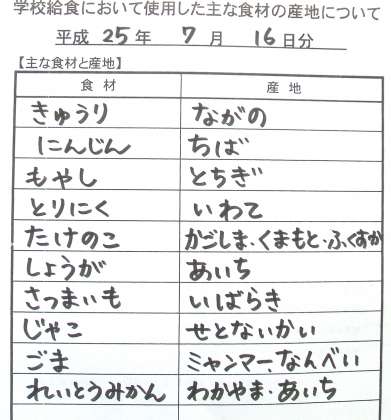 学校給食において使用した主な食材の産地について
平成 25 年 7 月 16 日分
【主な食材と産地】
食 材 産 地
きゅうり ながの
にんじん ちば
もやし とちぎ
とりにく いわて
たけのこ かごしま・くまもと・ふくすか
しょうが あいち
さつまいも いばらき
じゃこ せとないかい
ごま ミャンマー、なんべい
れいとうみかん わかやま・あいち